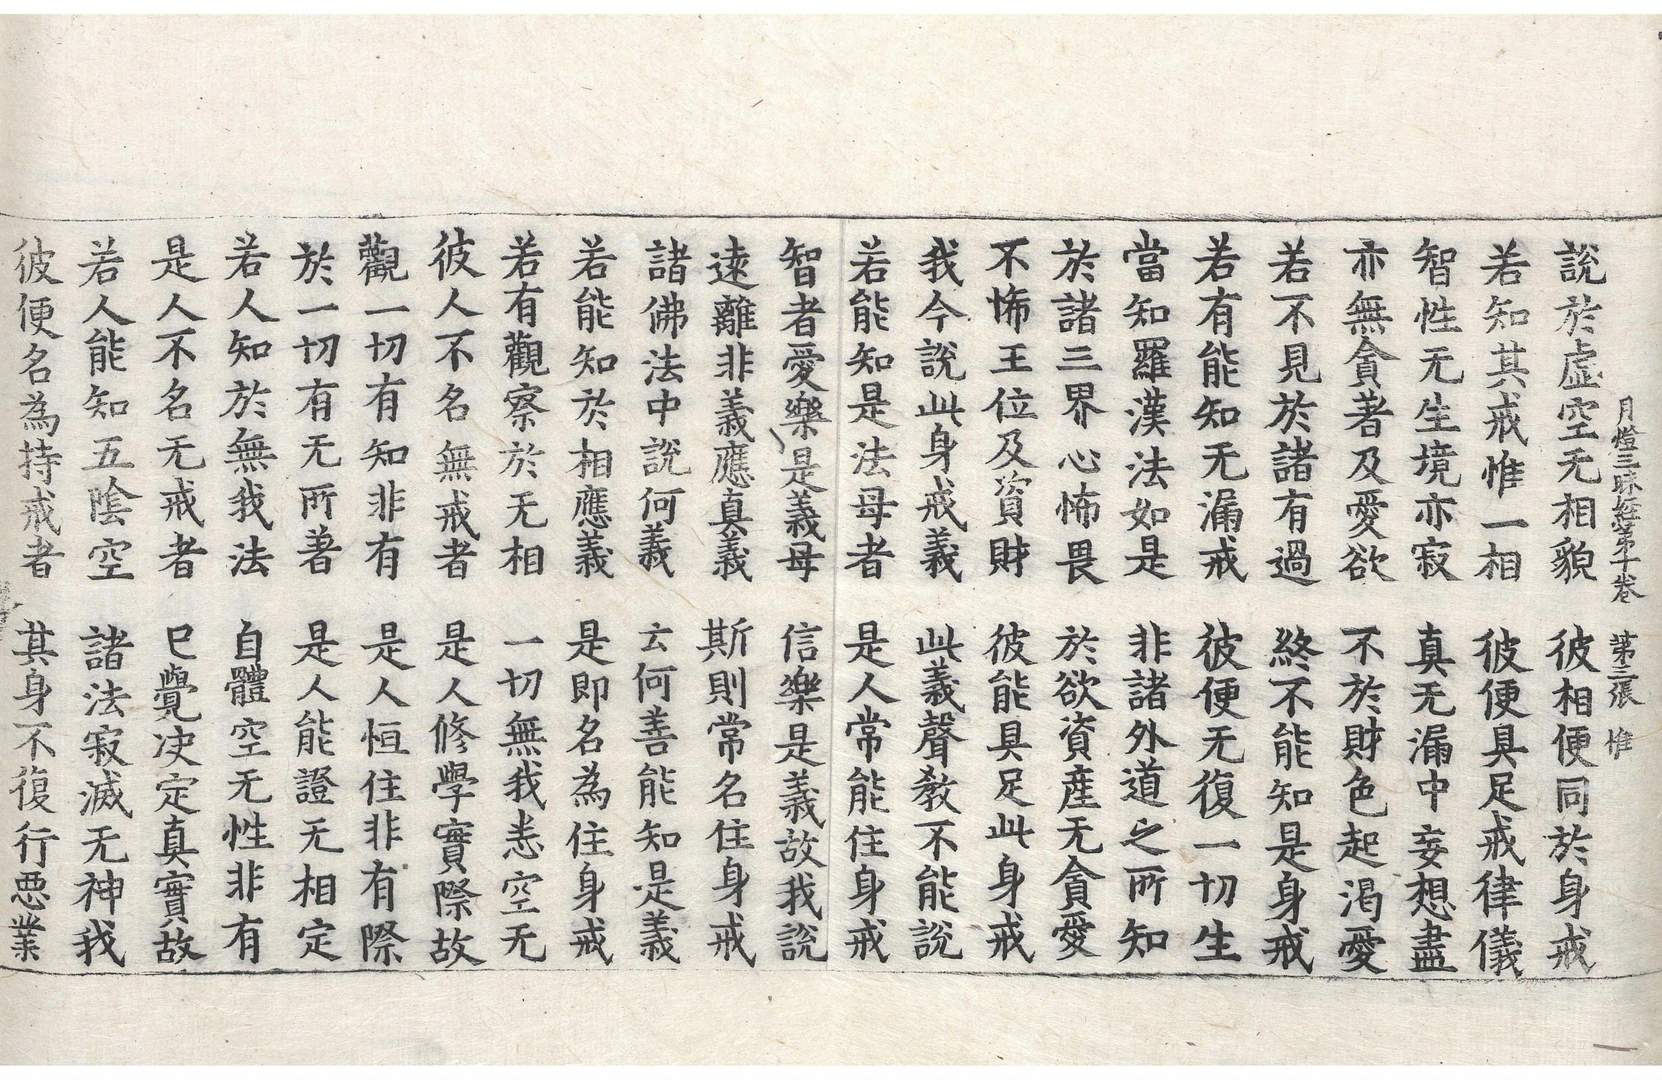 月燈三昧經第十卷　第三張　惟
說於虛空无相貌　彼相便同於身戒
若知其戒惟一相　彼便具足戒律儀
智性无生境亦寂　真无漏中妄想盡
亦無貪著及愛欲　不於財色起渴愛
若不見於諸有過　終不能知是身戒
若有能知无漏戒　彼便无復一切生
當知羅漢法如是　非諸外道之所知
於諸三界心怖畏　於欲資產无貪愛
不怖王位及資財　彼能具足此身戒
我今說此身戒義　此義聲教不能說
若能知是法母者　是人常能住身戒
智者愛樂是義母　信樂是義故我說
遠離非義應真義　斯則常名住身戒
諸佛法中說何義　云何善能知是義
若能知於相應義　是即名為住身戒
若有觀察於无相　一切無我悉空无
彼人不名無戒者　是人修學實際故
觀一切有知非有　是人恒住非有際
於一切有无所著　是人能證无相定
若人知於無我法　自體空无性非有
是人不名无戒者　已覺决定真實故
若人能知五陰空　諸法寂滅无神我
彼便名為持戒者　其身不復行惡業